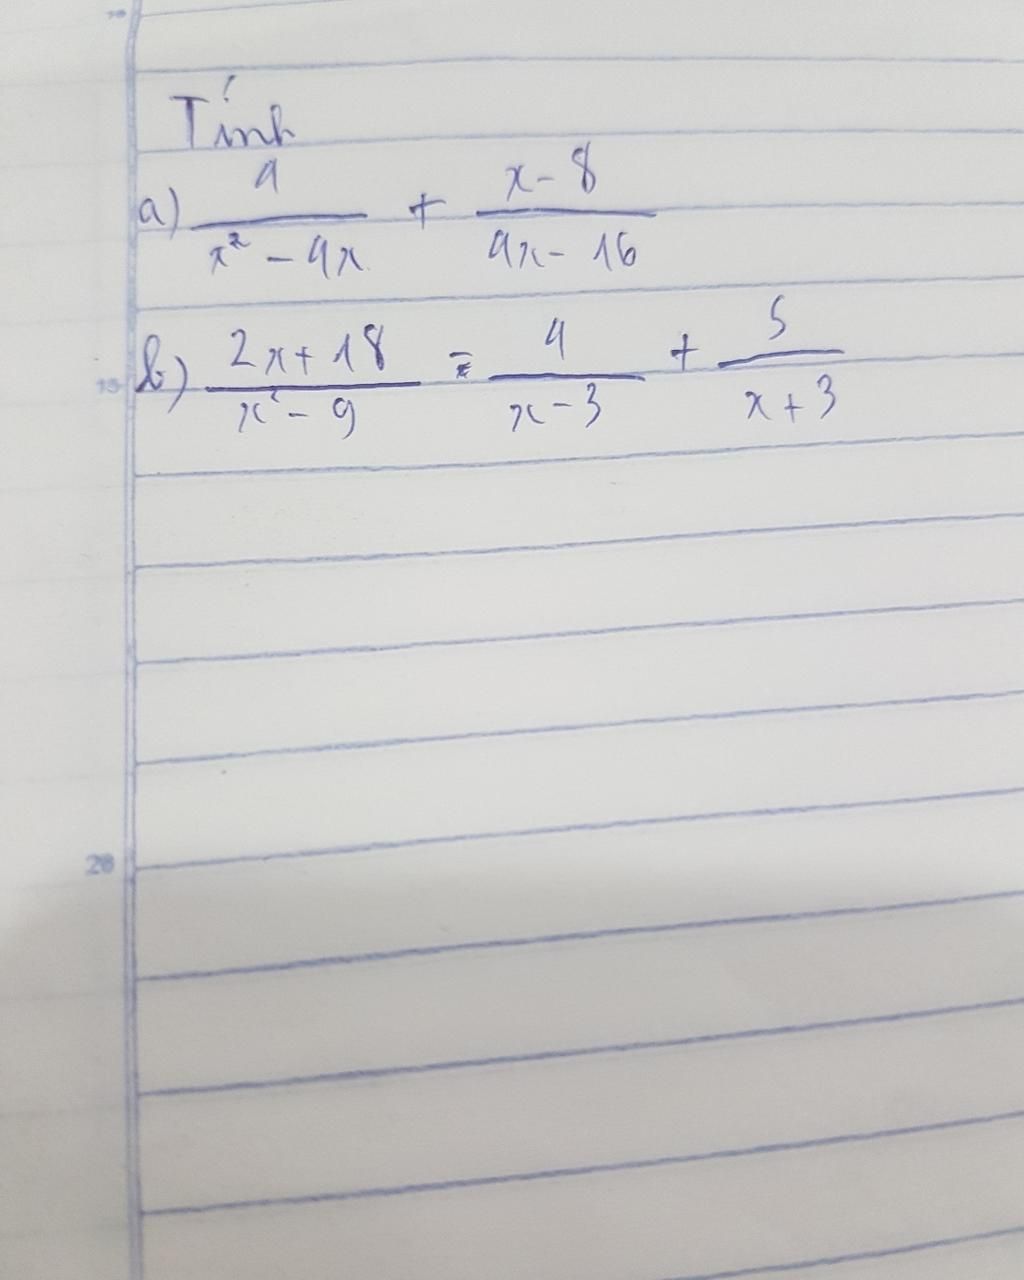 Tính
a) 4/(x² - 4x) + (x - 8)/(4x - 16)
b) (2x + 18)/(x² - 9) = 4/(x - 3) + 5/(x + 3)
20